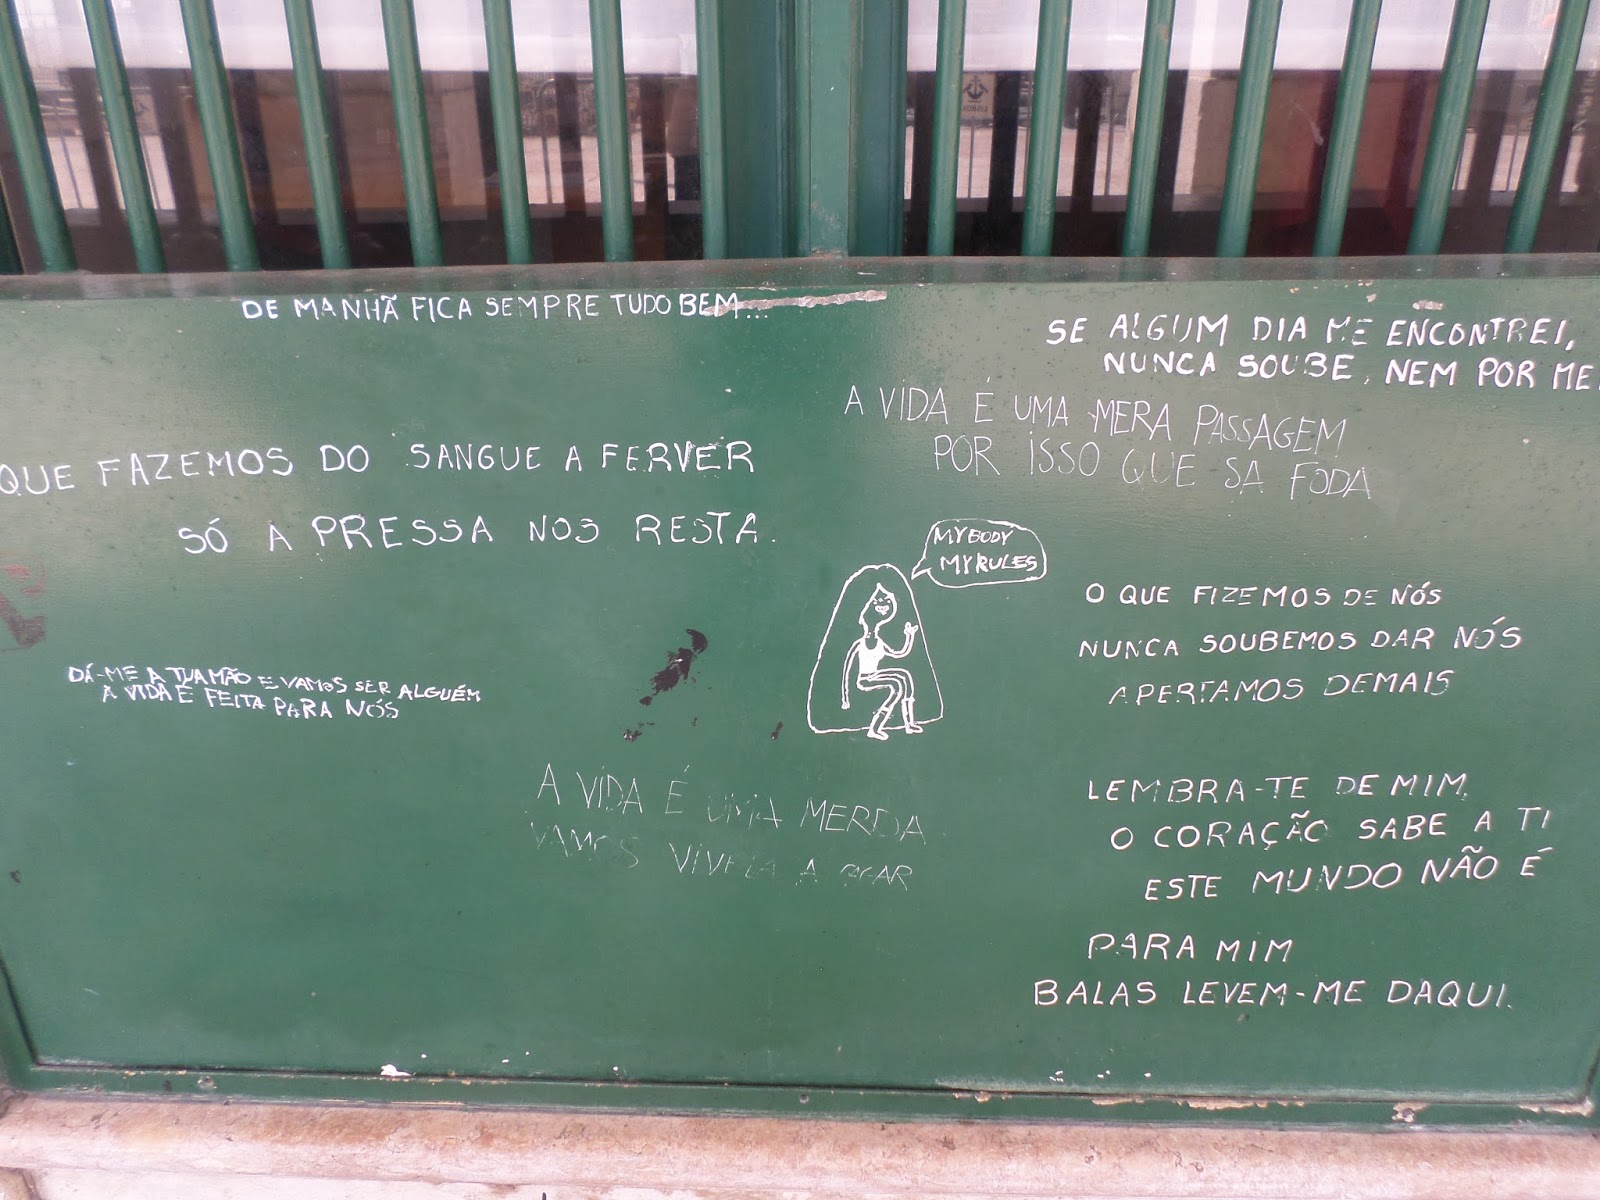 DE MANHÃ FICA SEMPRE TUDO BEM...
SE ALGUM DIA ME ENCONTREI,
NUNCA SOUBE, NEM POR ME
A VIDA É UMA MERA PASSAGEM
POR ISSO QUE SA FODA
QUE FAZEMOS DO SANGUE A FERVER
SÓ A PRESSA NOS RESTA.
MY BODY
MY RULES
O QUE FIZEMOS DE NÓS
NUNCA SOUBEMOS DAR NÓS
APERTAMOS DEMAIS
DÁ-ME A TUA MÃO E VAMOS SER ALGUÉM
A VIDA É FEITA PARA NÓS
A VIDA É UMA MERDA
VAMOS VIVELA A
LEMBRA-TE DE MIM,
O CORAÇÃO SABE A TI
ESTE MUNDO NÃO É
PARA MIM
BALAS LEVEM-ME DAQUI.